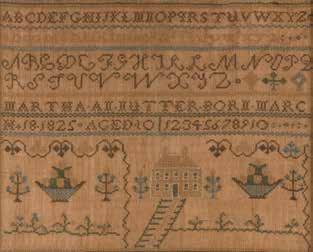 ABCDEFGHIJKLMNOPQRSTUVWXYZ
ABCDEFGHIKLMNOPQ
RSTUVWXYZ
MARTHA·AN·NUTTER·BORN·MARC
H·18·1825·AGED·10 12345678910